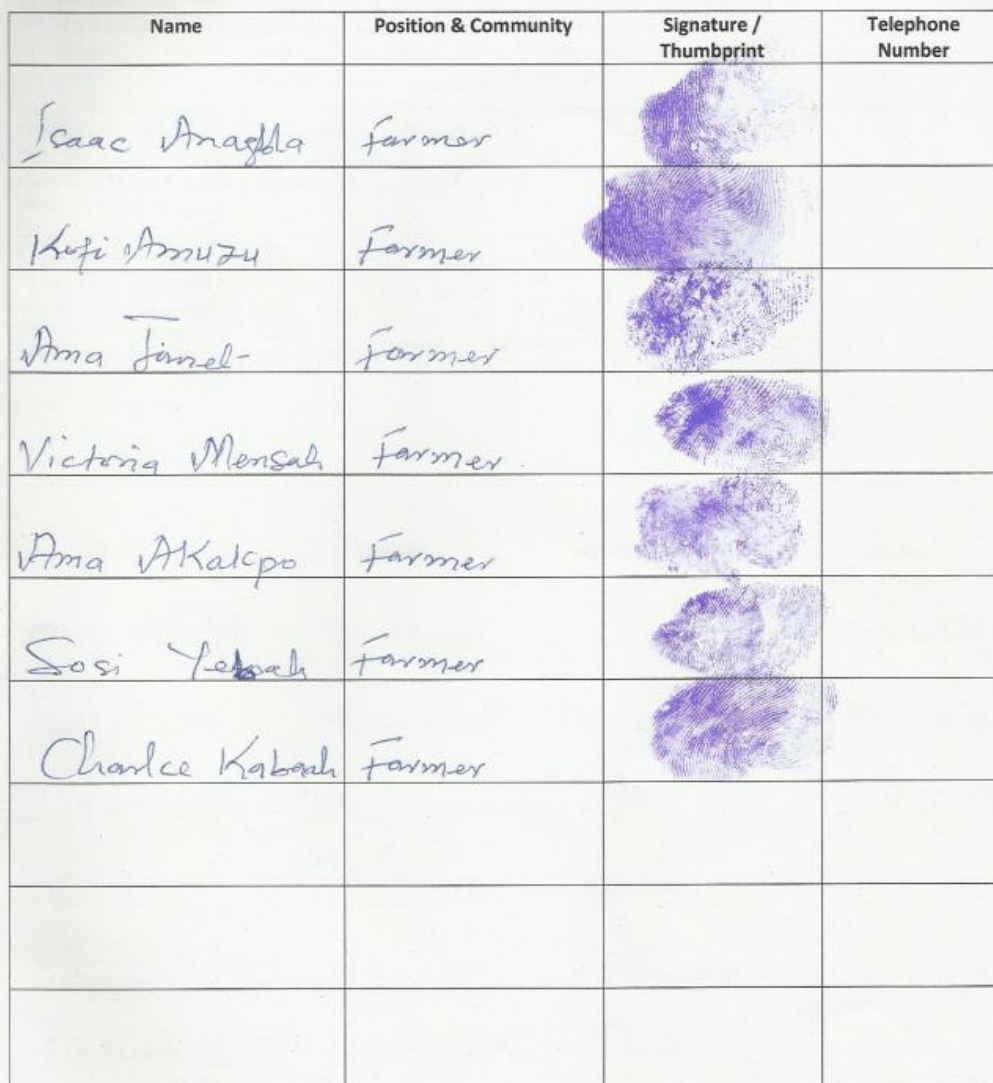 Name Position & Community Signature / Thumbprint Telephone Number
Isaac Anagbla Farmer
Kofi Amuzu Farmer
Ama Farmer
Victoria Mensah Farmer
Ama Akakpo Farmer
Sosi Yeboah Farmer
Kabaah Farmer